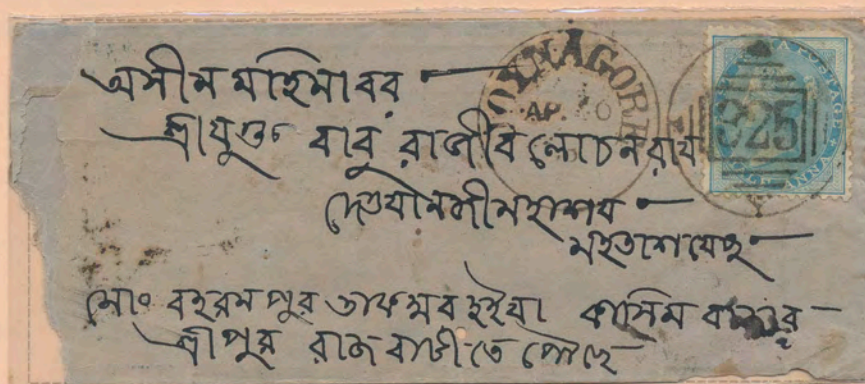 অসীম মহিমাবর
শ্রীযুক্ত বাবু রাজীব লোচন রায়
দেওযানজী মহাশয
মহতাশেষেষু
মোং বহরমপুর ডাকঘর হইযা কাসিম বাজার
শ্রীপুর রাজ বাটীতে পৌছে
OYNAGORE
AP. 
325
POSTAGE